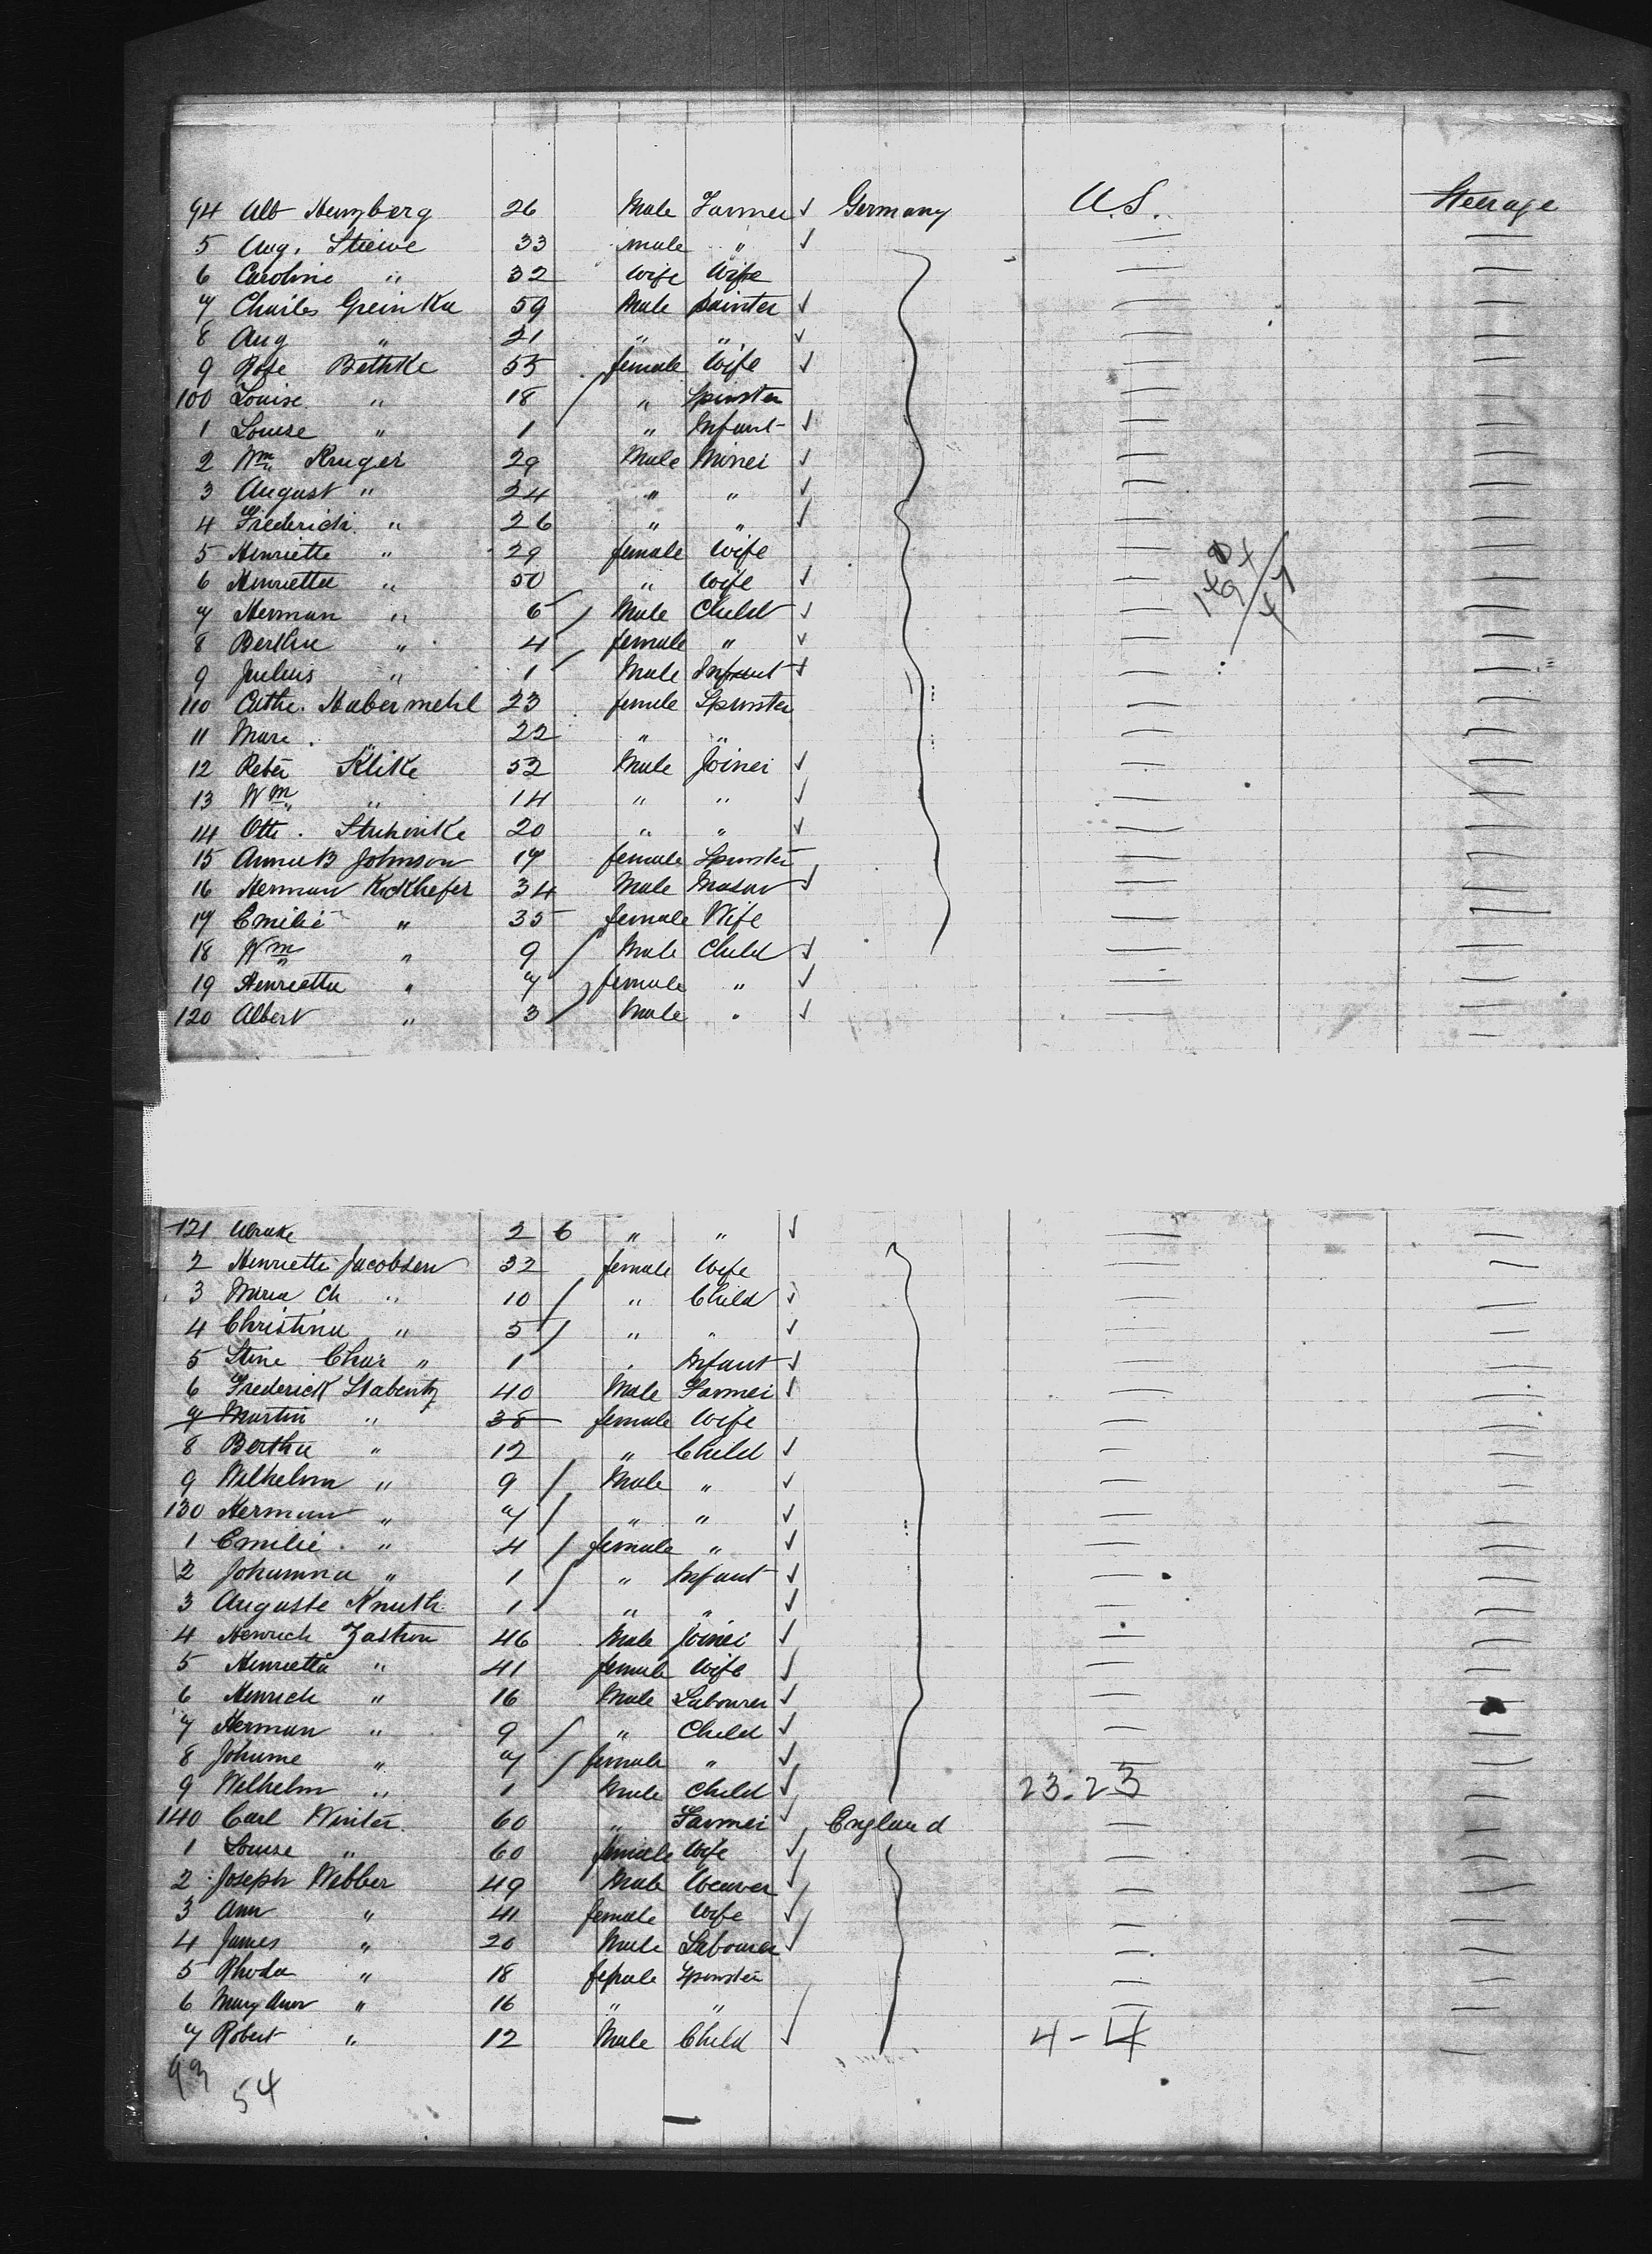 94 Alb Herzberg 26 Male Farmer ✓ Germany U.S. Steerage
5 Aug. Stuewe 33 male " ✓ — —
6 Caroline " 32 wife Wife — —
7 Charles Greinka 59 Male Painter ✓ — —
8 Aug " 21 " " ✓ — —
9 Rose Bethke 55 female Wife ✓ — —
100 Louise " 18 / " Spinster — —
1 Louise " 1 " Infant ✓ — —
2 Wm Kruger 29 Male Miner ✓ — —
3 August " 24 " " ✓ — —
4 Frederick " 26 " " ✓ — —
5 Henriette " 29 female Wife — —
6 Henrietta " 50 " Wife ✓ — —
7 Herman " 6 / Male Child ✓ — —
8 Bertha " 4 female " ✓ — —
9 Julius " 1 / Male Infant ✓ — —
110 Cathe. Habermehl 23 female Spinster — —
11 Mare. " 22 " " — —
12 Peter Klike 52 Male Joiner ✓ — —
13 Wm " 14 " " ✓ — —
14 Otto. 20 " " ✓ — —
15 Anna B Johnson 17 female Spinster — —
16 Herman Kockhefer 34 Male Mason ✓ — —
17 Emilie " 35 female Wife — —
18 Wm " 9 / Male Child ✓ — —
19 Henrietta " 7 / female " ✓ — —
120 Albert " 3 / Male " ✓ — —
121 2 6 " " ✓ — —
2 Henriette Jacobsen 32 female Wife — —
3 Maria Ch " 10 / " Child ✓ — —
4 Christina " 5 / " " ✓ — —
5 Stine Char " 1 " Infant ✓ — —
6 Frederick Stabentz 40 Male Farmer ✓ — —
7 Martin " 38 female Wife — —
8 Bertha " 12 " Child ✓ — —
9 Wilhelm " 9 / Male " ✓ — —
130 Herman " 7 / " " ✓ — —
1 Emilie " 4 / female " ✓ — —
2 Johanna " 1 / " Infant ✓ — —
3 Auguste Knuth 1 " " ✓ — —
4 Henrich Zastrow 46 Male Joiner ✓ — —
5 Henrietta " 41 female Wife ✓ — —
6 Henrich " 16 Male Labourer ✓ — —
7 Herman " 9 / " Child ✓ — —
8 Johanne " 7 / female " ✓ — —
9 Wilhelm " 1 Male Child ✓ 23-23 —
140 Carl Winter 60 " Farmer ✓ England — —
1 Louise " 60 female Wife ✓ — —
2 Joseph Webber 49 Male Weaver ✓ — —
3 Ann " 41 female Wife ✓ — —
4 James " 20 Male Labourer ✓ — —
5 Rhoda " 18 female Spinster — —
6 Mary Ann " 16 " " — —
7 Robert " 12 Male Child ✓ 4-4 —
93 54